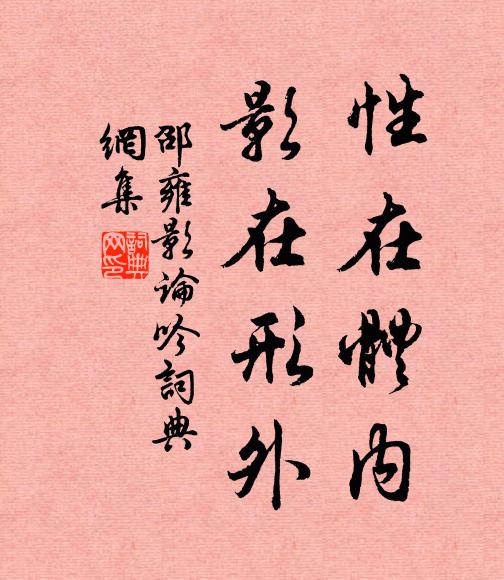 性在體內
影在形外
邵雍影論吟詞典
網集
詞典
网印